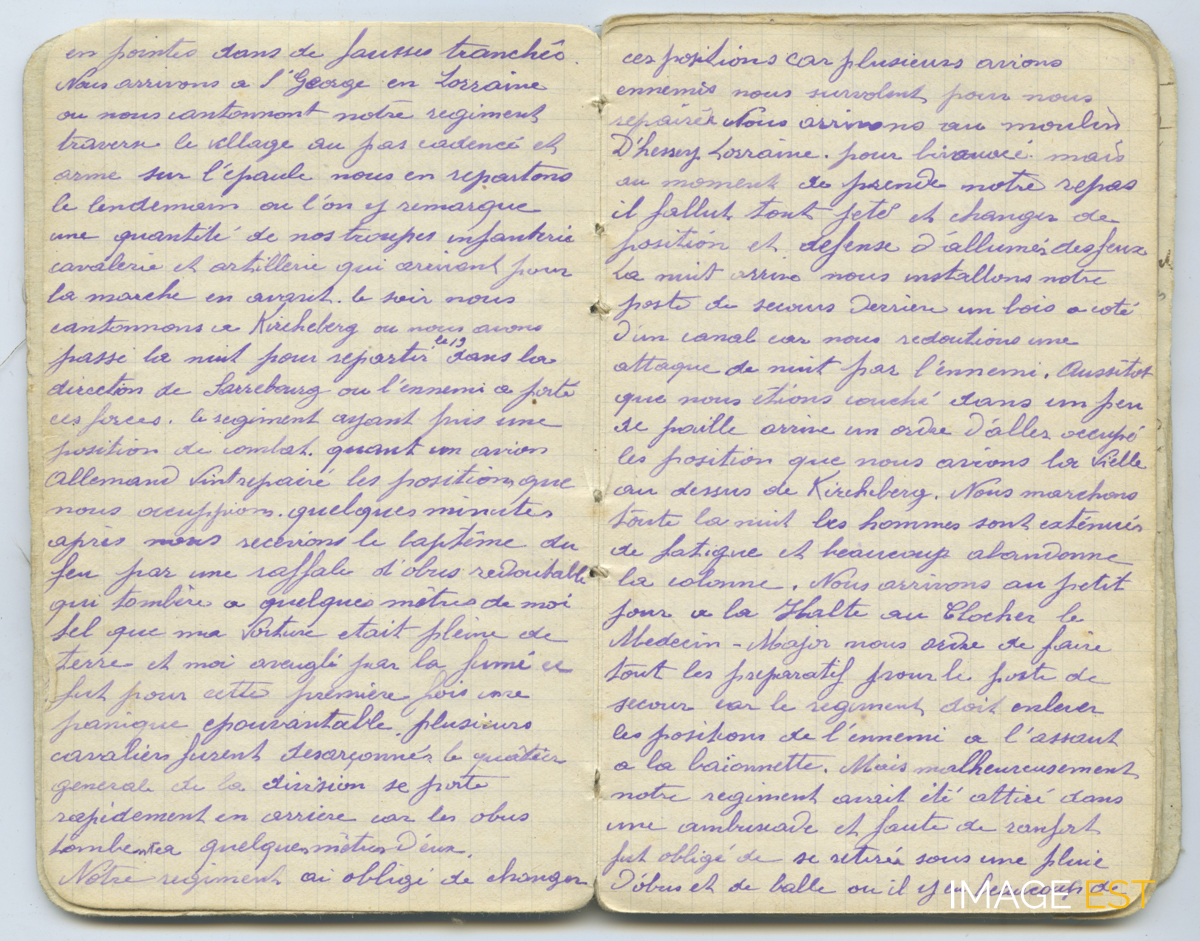 en pointes dans de fausses tranchés.
Nous arrivons a l'George en Lorraine
ou nous cantonnont notre regiment
traverse le village au pas cadencé et
arme sur l'épaule nous en repartons
le lendemain ou l'on y remarque
une quantité de nos troupes infanterie
cavalerie et artillerie qui arrivant pour
la marche en avant. le soir nous
cantonnons a Kircheberg ou nous avons
passé la nuit pour repartir le 19 dans la
direction de Sarrebourg ou l'ennemi a porté
ces forces. le regiment ayant pris une
position de combat. quant un avion
Allemand vint repairé les positions que
nous occuppions. quelques minutes
après nous recevions le baptême du
feu par une raffale d'obus redoutable
qui tombère a quelques mètres de moi
tel que ma voiture etait pleine de
terre et moi aveuglé par la fumé ce
fut pour cette première fois une
panique epouvantable, plusieurs
cavaliers furent desarçonnés le quartier
general de la division se porte
rapidement en arriere car les obus
tombent a quelques mètres d'eux.
Notre regiment ai obligé de changer
ces positions car plusieurs avions
ennemis nous survolent pour nous
repairér Nous arrivons au moulin
D'hessey Lorraine. pour bivouacé. mais
au moment de prende notre repas
il fallut tout jeté et changer de
position et defense d'allumér des feux
La nuit arrive nous installons notre
poste de secours derriere un bois a coté
d'un canal car nous redoutions une
attaque de nuit par l'ennemi. Aussitot
que nous étions couché dans un peu
de paille arrive un ordre d'aller occupé
les position que nous avions la vielle
au dessus de Kircheberg. Nous marchons
toute la nuit les hommes sont exténués
de fatigue et beaucoup abandonne
la colonne. Nous arrivons au petit
jour a la Halte au Clocher le
Medecin-Major nous ordre de faire
tout les preparatif pour le poste de
secour car le regiment doit enlever
les positions de l'ennemi a l'assaut
a la baïonnette. Mais malheureusement
notre regiment avait été attiré dans
une ambuscade et faute de ranfort
fut obligé de se retirée sous une pluie
d'obus et de balle ou il y eu beaucoup de
IMAGE EST